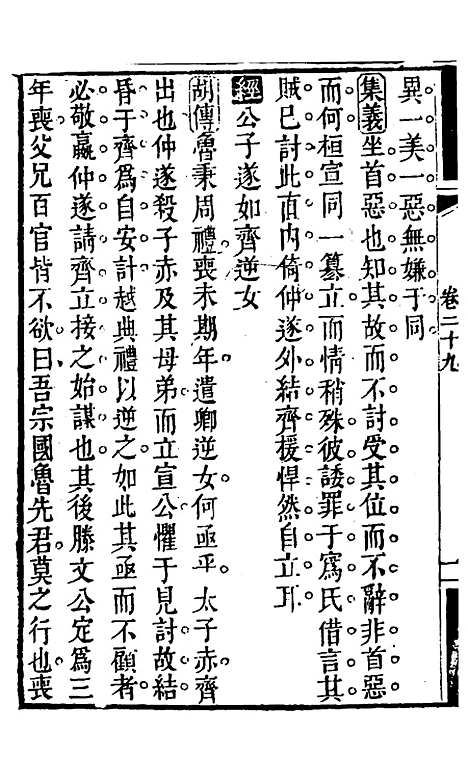 卷二十九
異一美一惡無嫌于同
集義坐首惡也知其故而不討受其位而不辭非首惡
而何桓宣同一篡立而情稍殊彼諉罪于寪氏借言其
賊已討此直内倚仲遂外結齊援悍然自立耳
經公子遂如齊逆女
胡傳魯秉周禮喪未期年遣卿逆女何亟乎太子赤齊
出也仲遂殺子赤及其母弟而立宣公懼于見討故結
昏于齊爲自安計越典禮以逆之如此其亟而不顧者
必敬嬴仲遂請齊立接之始謀也其後滕文公定爲三
年喪父兄百官皆不欲曰吾宗國魯先君莫之行也喪